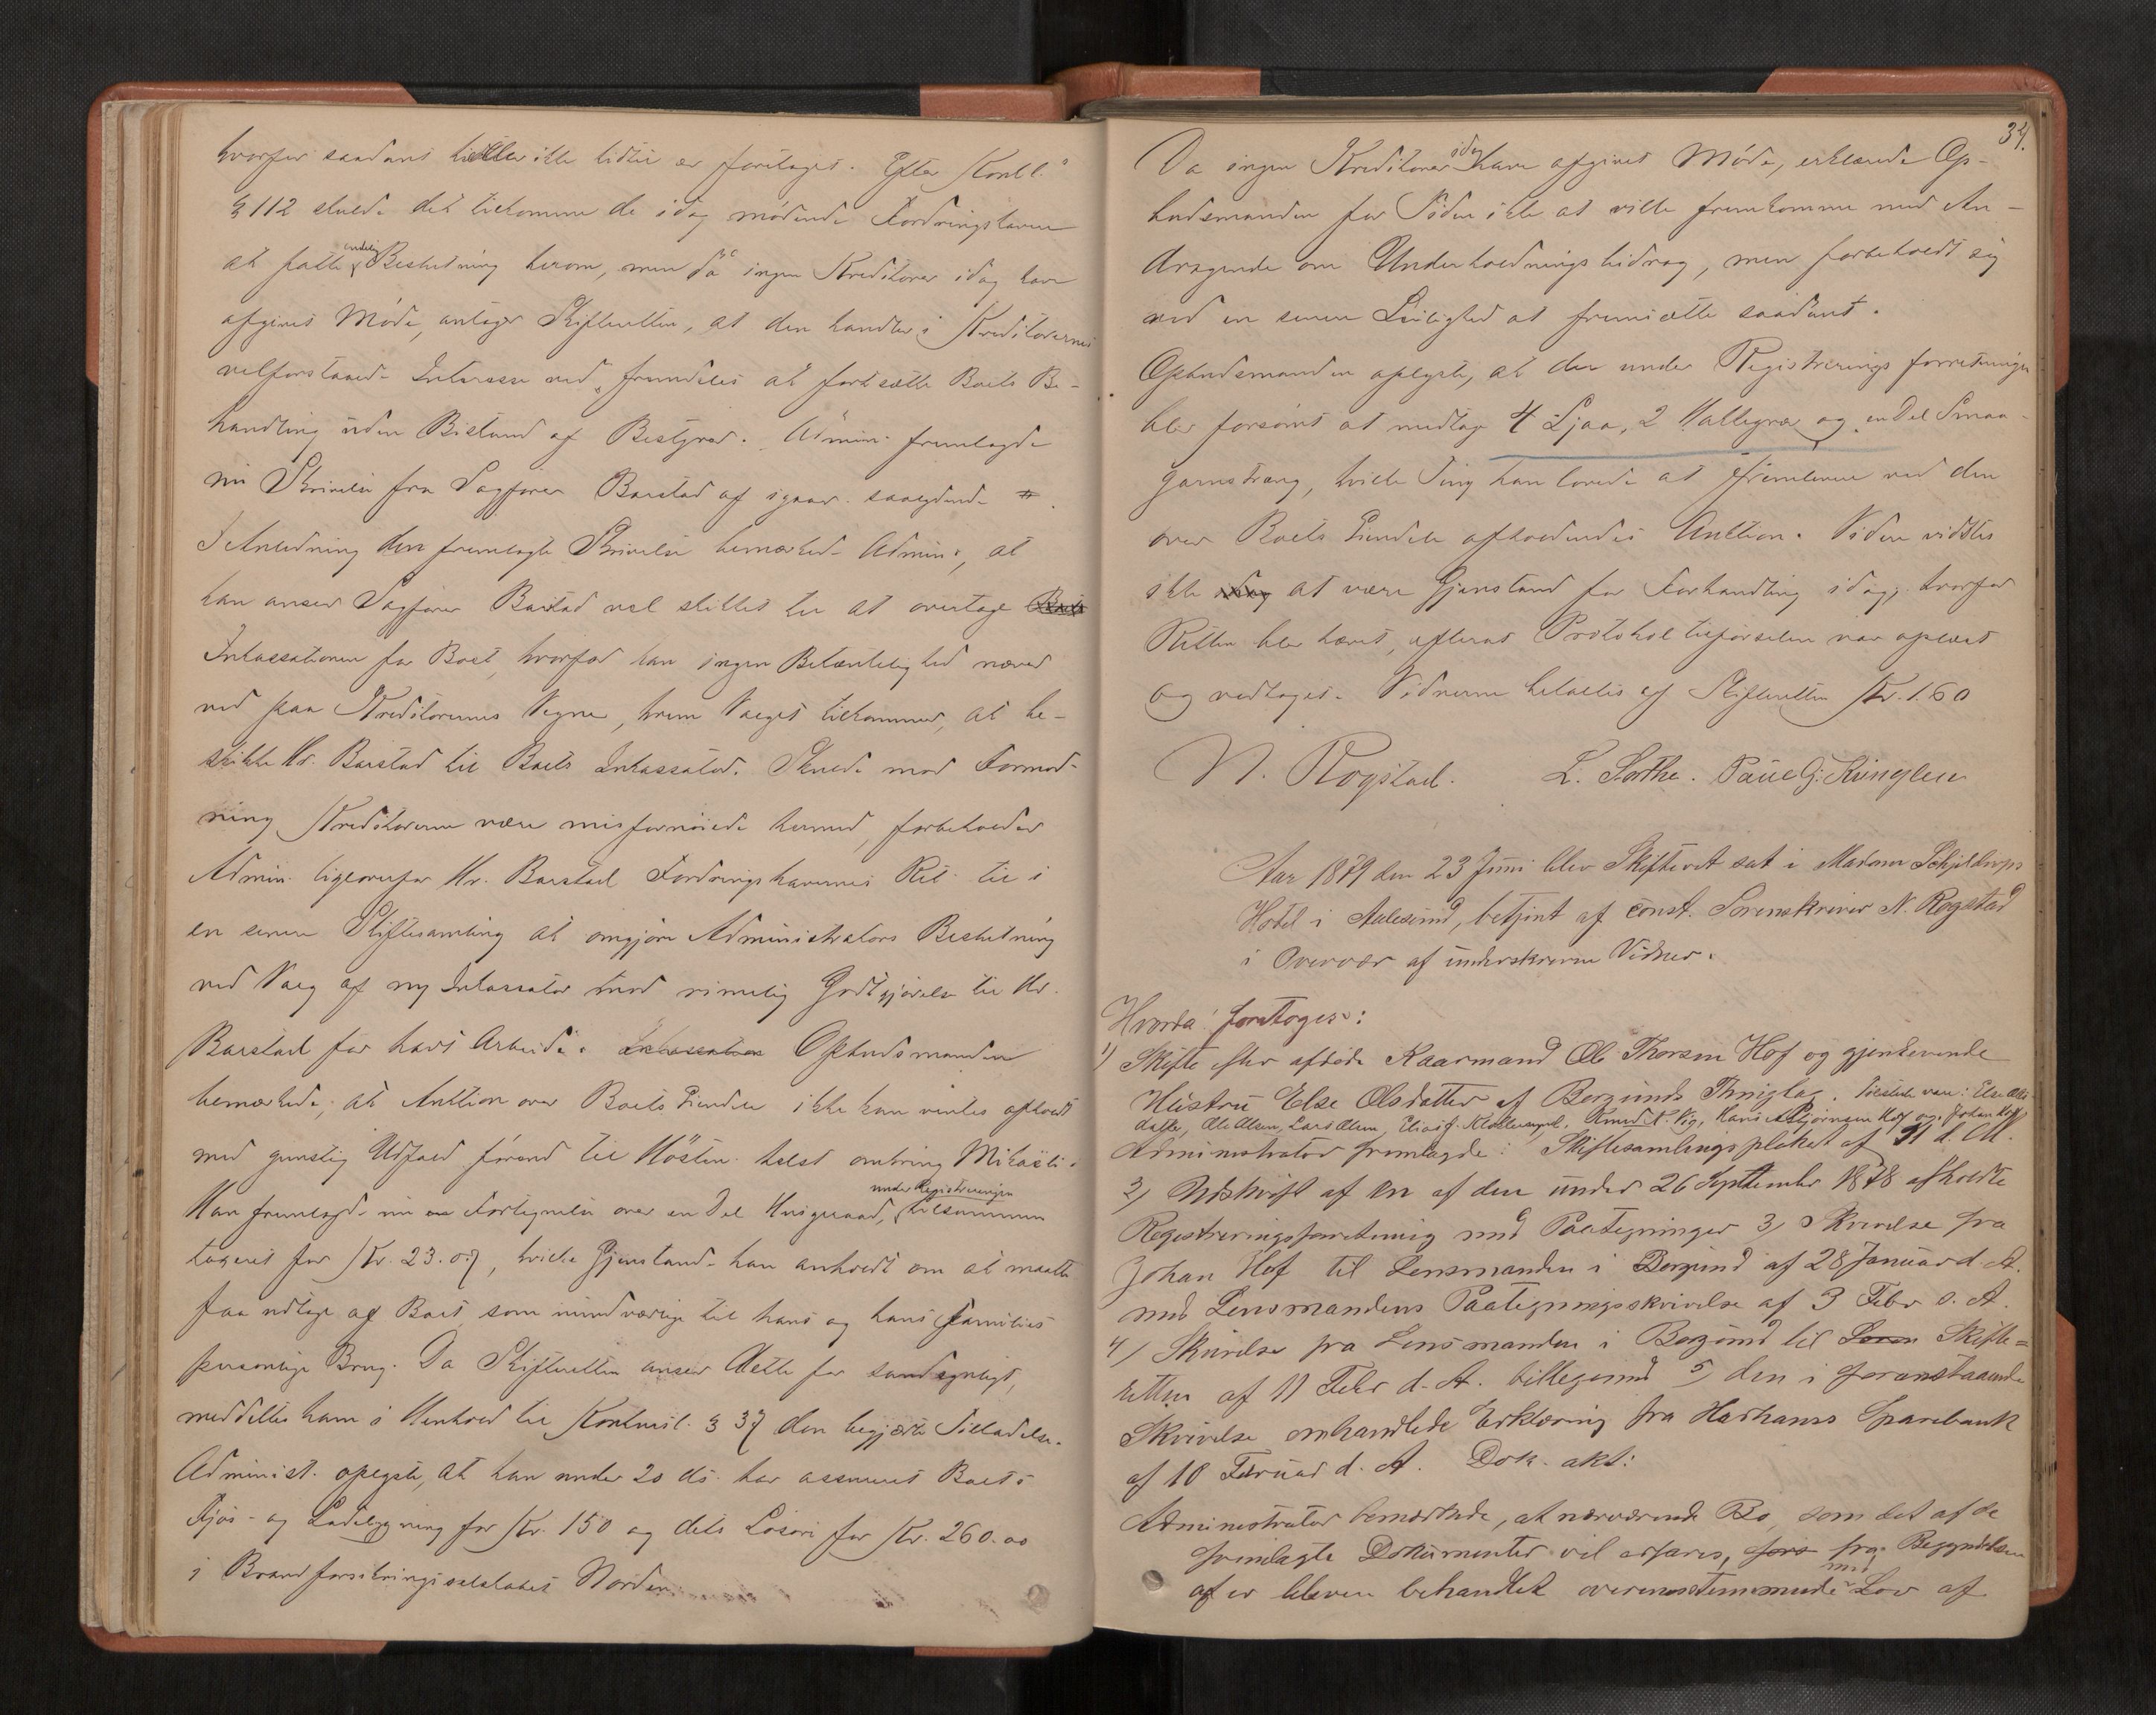 hvorfor saadant heller ikke hidtil er foretaget. Efter Konkl.
§ 112 skulde det tilkomme de idag mødende Fordringshavere
at fatte endelig Beslutning herom, men da ingen Kreditorer idag have
afgivet Møde, antager Skifteretten, at den handler i Kreditorernes
velforstaaede Interesse ved fremdeles at fortsætte Boets Be-
handling uden Bistand af Bestyrer. Admin. fremlagde
nu Skrivelse fra Sagfører Barstad af igaar saalydende #.
I Anledning den fremlagte Skrivelse bemærkede Admin., at
han anser Sagfører Barstad vel skikket til at overtage
Inkassationen for Boet, hvorfor han ingen Betænkelighed nærer
ved paa Kreditorernes Vegne, hvem Valget tilkommer, at be-
skikke Hr. Barstad til Boets Inkassator. Skulde mod Formod-
ning Kreditorerne være misfornøiede hermed, forbeholder
Admin. ligeoverfor Hr. Barstad Fordringshavernes Ret til i
en senere Skiftesamling at omgjøre Administrators Beslutning
ved Valg af ny Inkassator mod rimelig Godtgjørelse til Hr.
Barstad for hans Arbeide. Inkassation Opbudsmanden
bemærkede, at Auktion over Boets Eiendele ikke kan ventes afholdt
med gunstig Udfald førend til Høsten helst omkring Mikaeli.
Han fremlagde nu en Fortegnelse over en Del Husgeraad, under Registreringen tilsammen
taxeret for Kr. 23.07, hvilke Gjenstande han anholdt om at maatte
faa udtage af Boet som nundværlige til hans og hans Families
personlige Brug. Da Skifteretten anser dette for sandsynligt,
meddeltes ham i Henhold til Konkursl. § 37 den begjærte Tilladelse.
Administ. oplyste, at han under 20 ds. har assureret Boets
Fjøs- og Ladebygning for Kr. 150 og dets Løsøre for Kr. 260.00
i Brandforsikringsselskabet Norden.
34.
Da ingen Kreditorer idag have afgivet Møde, erklærede Op-
budsmanden for Tiden ikke at ville fremkomme med An-
dragende om Underholdningsbidrag, men forbeholdt sig
ved en senere Leilighed at fremsætte saadant.
Opbudsmanden oplyste, at der under Registreringsforretningen
blev forsømt at medtage 4 Ljaa, 2 og en Del Smaa-
garnstræng, hvilke Ting han lovede at fremlevere ved den
over Boets Eiendele afholdendes Auktion. Videre vidstes
ikke idag at være Gjenstand for Forhandling idag, hvorfor
Retten blev hævet, efterat Protokoltilførselen var oplæst
og vedtaget. Vidnerne betaltes af Skifteretten Kr. 1.60
N. Rogstad. L. Sæthe. Paul G. Kvinglen
Aar 1879 den 23 Juni blev Skifteret sat i Madam Schjelderups
Hotel i Aalesund, betjent af const. Sorenskriver N. Rogstad
i Overvær af underskrevne Vidner.
Hvorda foretoges:
1) Skifte efter afdøde Kaarmand Ole Thorsen Hof og gjenlevende
Hustru Else Olsdatter af Borgunds Thinglag. Tilstede vare: Else Ols-
datter, Ole Olsen, Lars Olsen, Elias J. Klokkersund, Knud N. Vig, Hans A Bjørnsen Hof og Johan Hof
Administrator fremlagde: Skiftesamlingsplakat af 31 d. M.
2) Udskrift af en af den under 26 September 1878 afholdte
Registreringsforretning med Paategninger 3) Skrivelse fra
Johan Hof til Lensmanden i Borgund af 28 Januar d. A.
med Lensmandens Paategningsskrivelse af 3 Febr s. A.
4) Skrivelse fra Lensmanden i Borgund til Soren Skifte=
retten af 11 Febr d. A. billegged 5) den i foranstaaende
Skrivelse omhandlede Erklæring fra Harhams Sparebank
af 10 Februar d. A. Dok. akt:
Administrator bemærkede, at nærværende Bo, som det af de
fremlagte Dokumenter vil erfares, fors fra Begyndelsen
af er bleven behandlet overensstemmende med Lov af